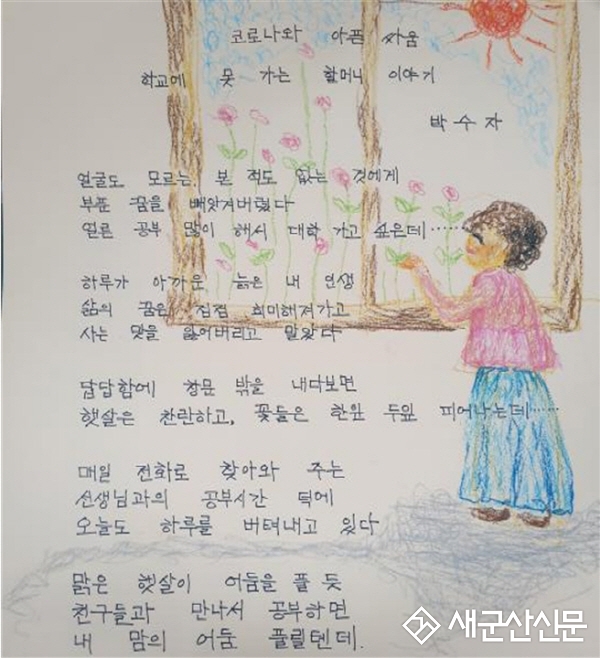 코로나와 아픈 싸움
학교에 못 가는 할머니 이야기
박수자
얼굴도 모르는, 본 적도 없는 것에게
부푼 꿈을 빼앗겨버렸다
얼른 공부 많이 해서 대학 가고 싶은데……
하루가 아까운, 늙은 내 인생
삶의 꿈은 점점 희미해져가고
사는 맛을 잃어버리고 말았다
답답함에 창문 밖을 내다보면
햇살은 찬란하고, 꽃들은 한잎 두잎 피어나는데……
매일 전화로 찾아와 주는
선생님과의 공부시간 덕에
오늘도 하루를 버텨내고 있다
맑은 햇살이 어둠을 풀 듯
친구들과 만나서 공부하면
내 맘의 어둠 풀릴텐데.
새군산신문